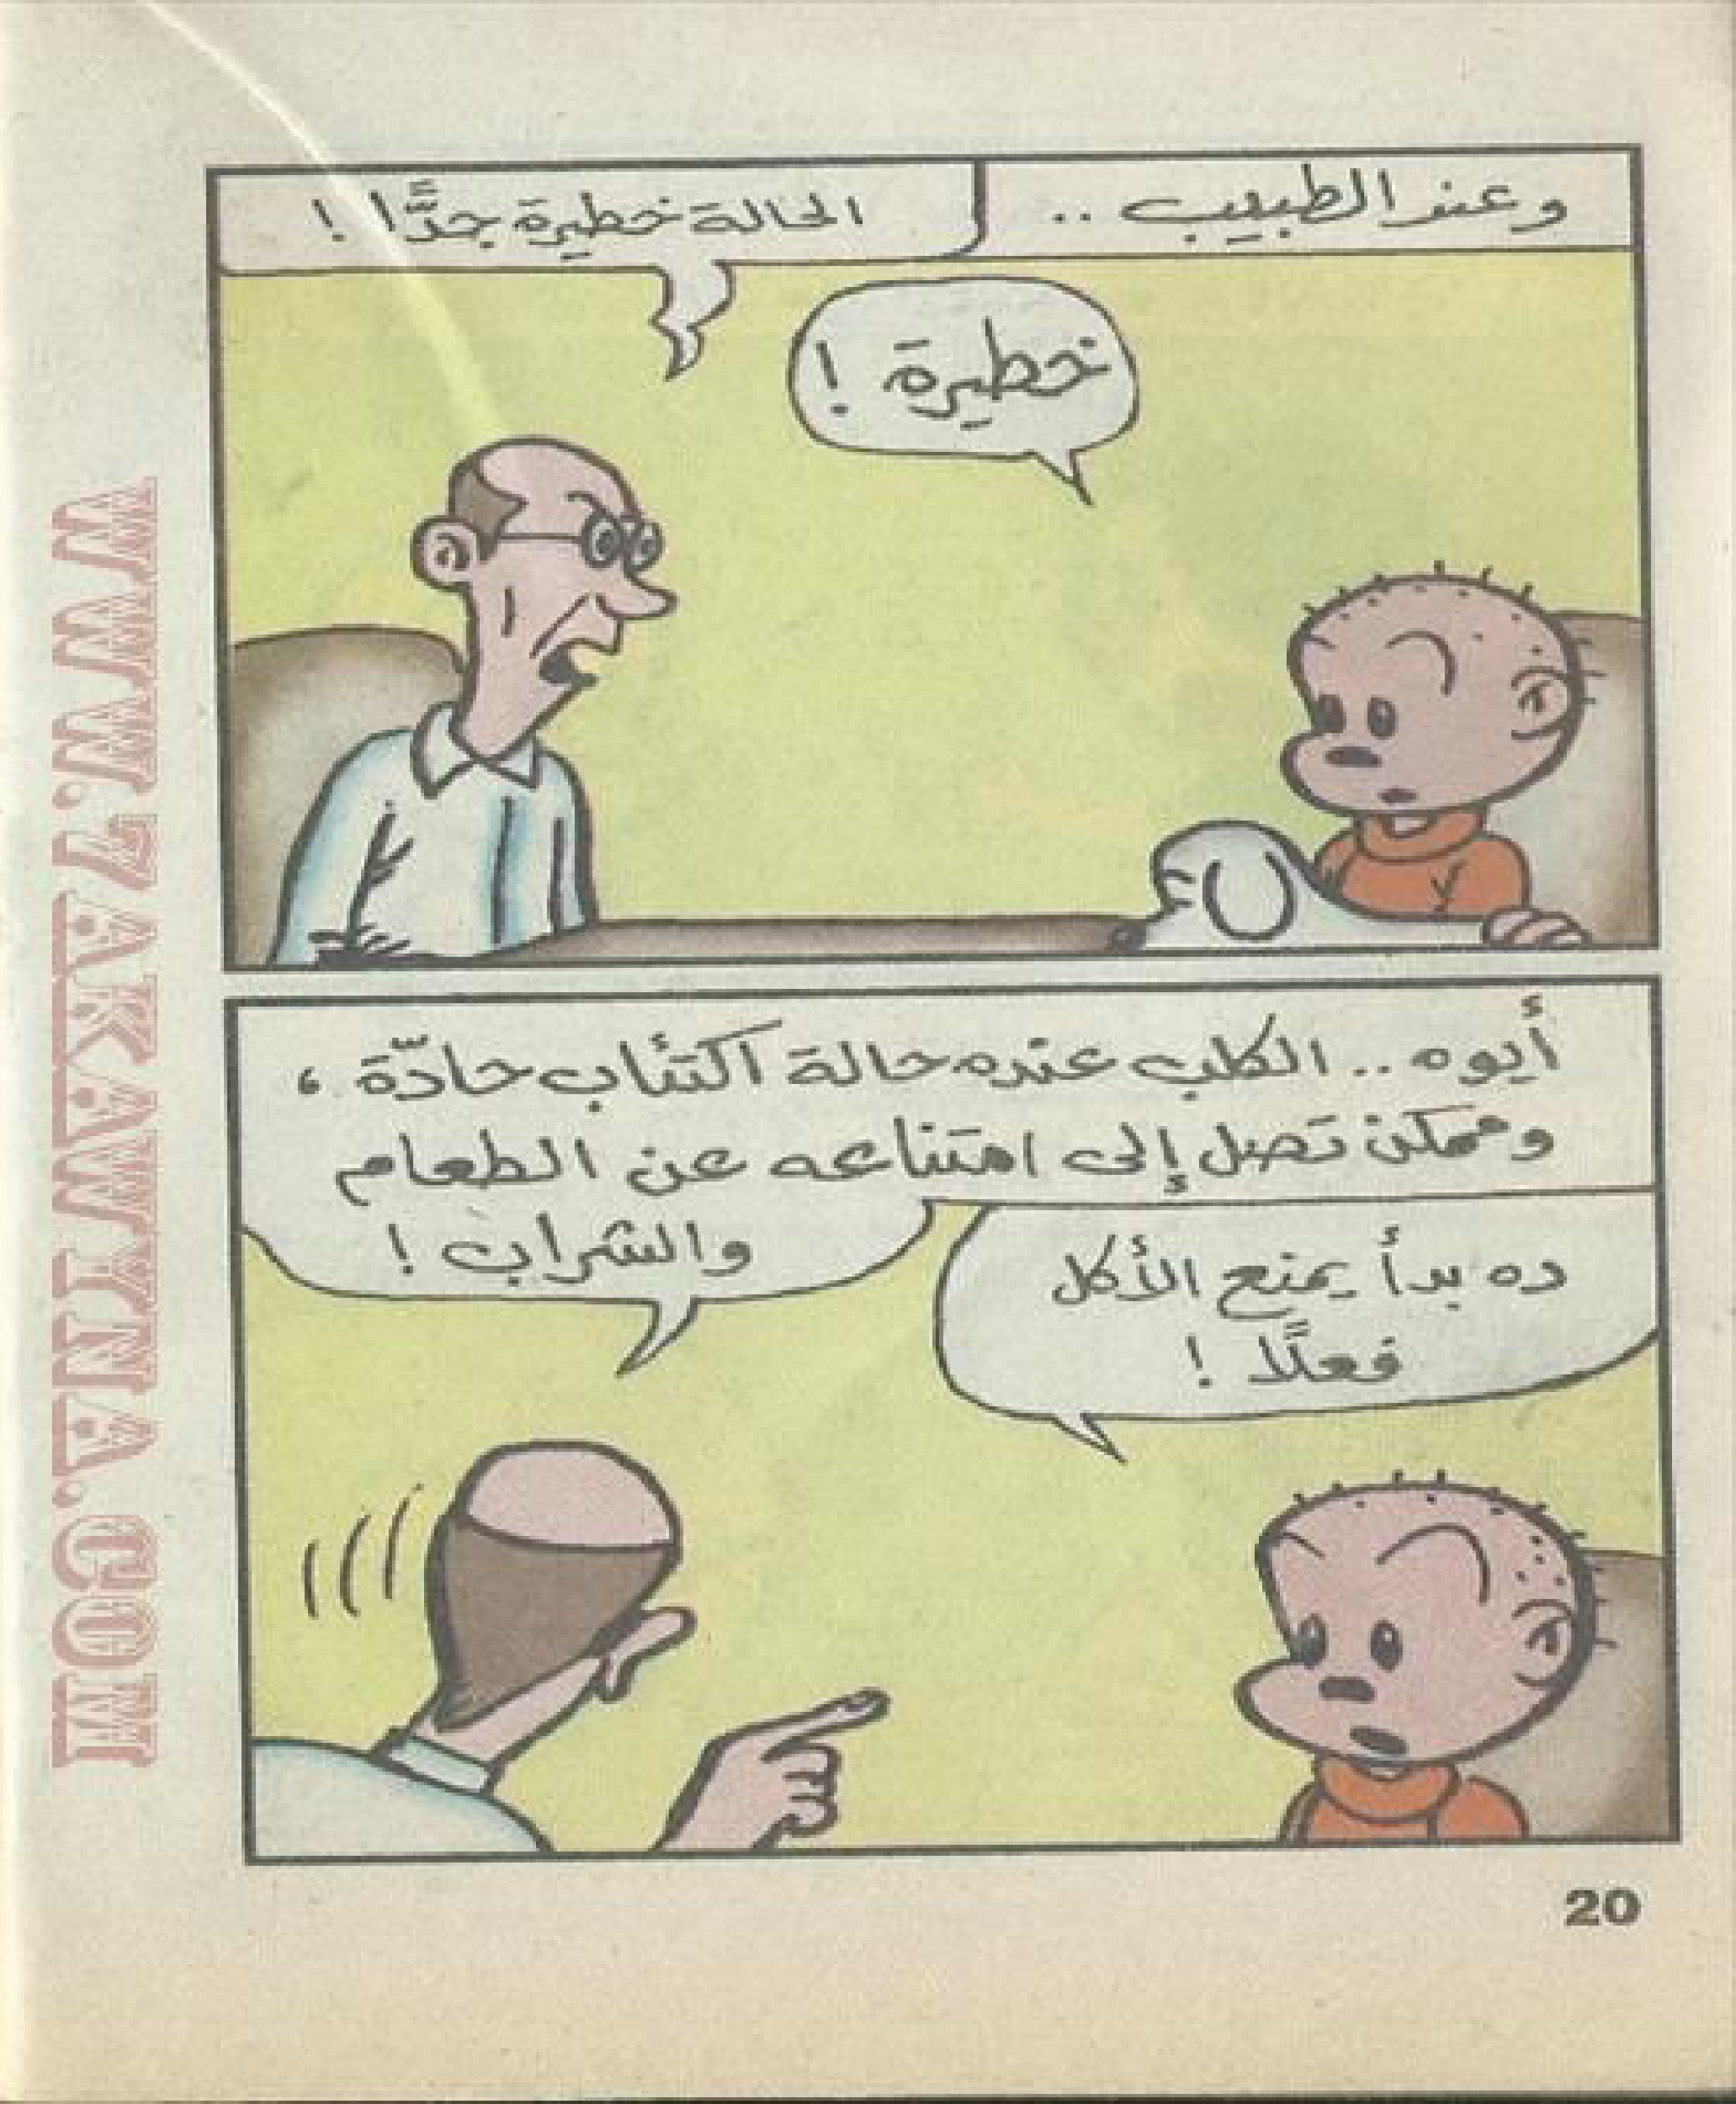 وعند الطبيب ..
الحالة خطيرة جدًّا !
خطيرة !
أيوه .. الكلب عنده حالة اكتئاب حادّة ،
وممكن تصل إلى امتناعه عن الطعام
والشراب !
ده بدأ يمنع الأكل
فعلًا !
20
WWW.7AKAWINA.COM